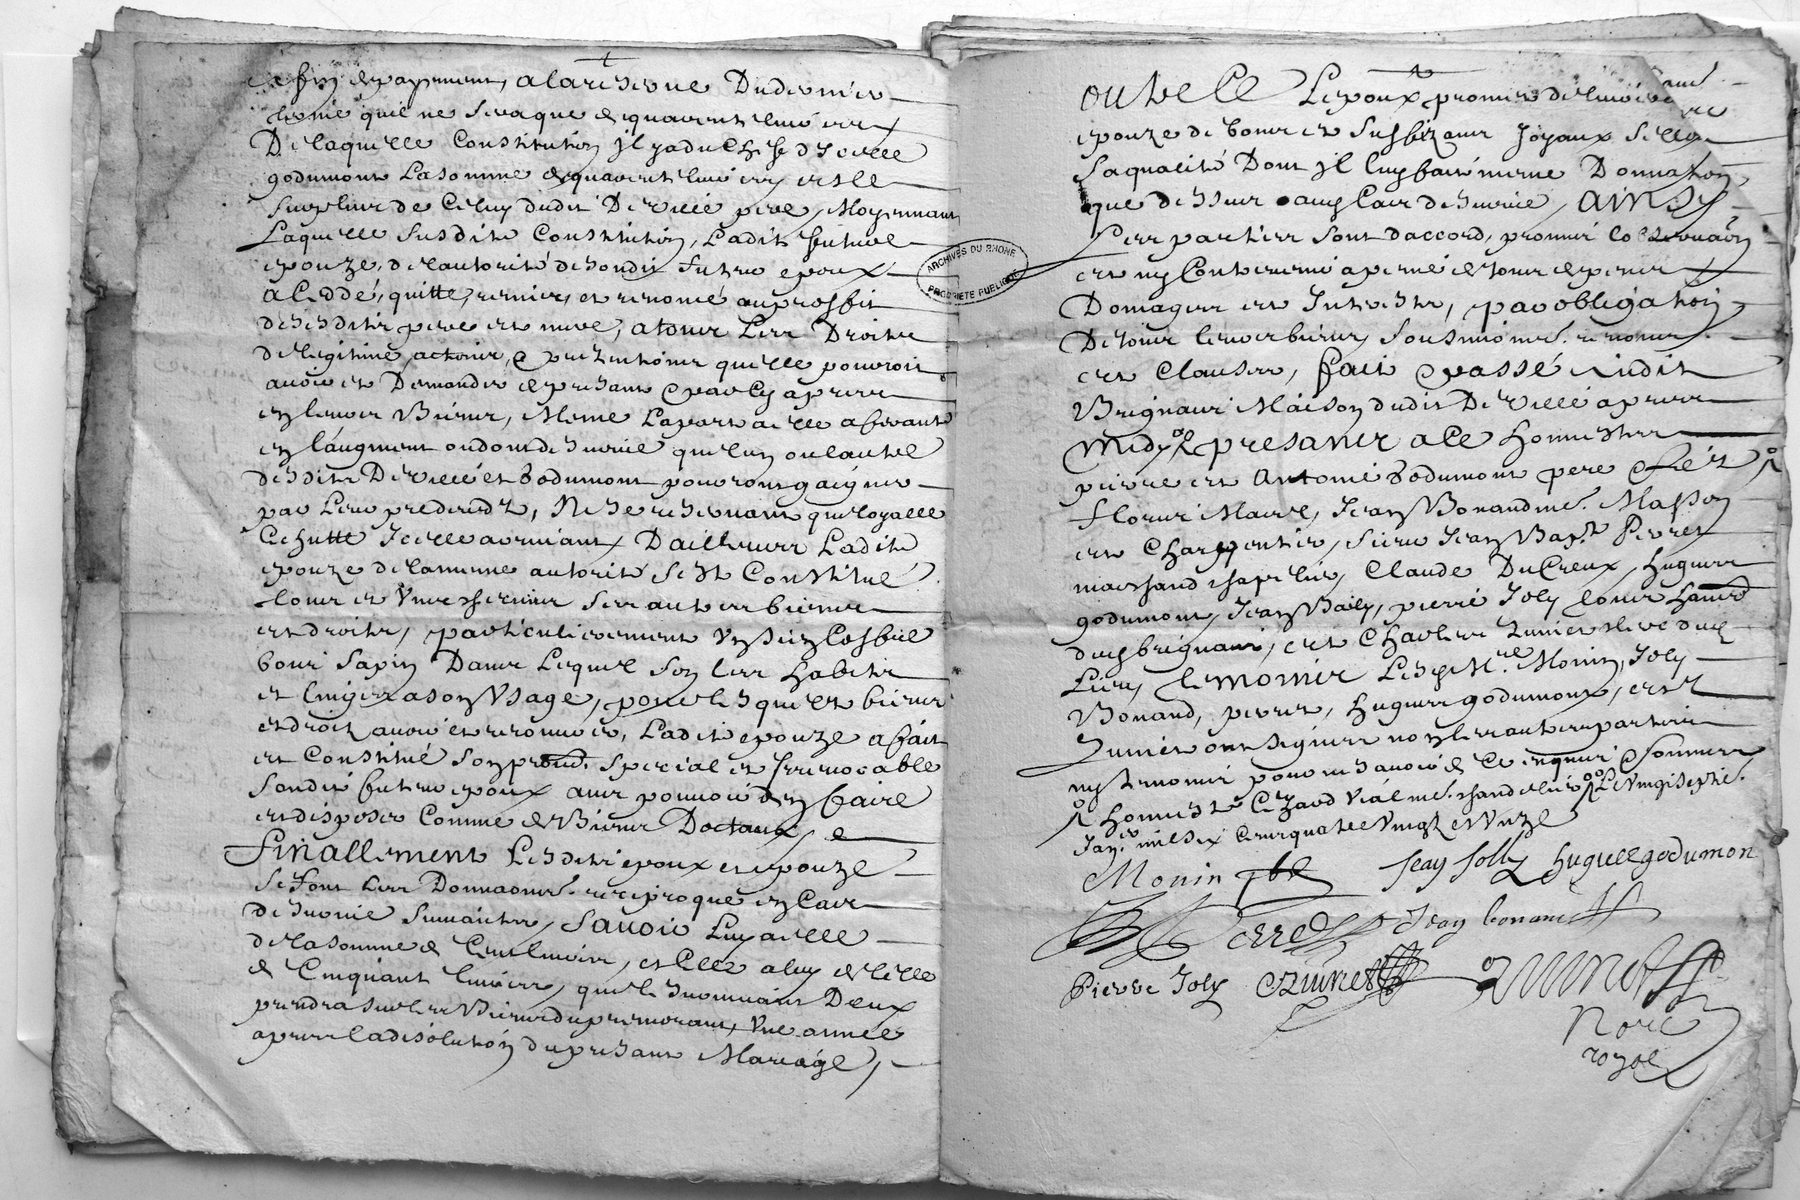 fin de payement, a la reserve du dernier
terme quil ne sera que de quarente livres
De laquelle Constitution jl y a du Cheff d'Icelle
godumont La somme de quarente livres et le
surplus de Celuy dudit Deville pere, Moyennant
Laquelle susdite Constitution, Ladite future
epouze, de l'autorité de sondit futur epoux
a Ceddé, quitte, remis, et renoncé au proffit
desesdits pere et mere, a tous Les Droits
de legitime, actions, & pretentions quelle pouvoit
avoir et Demander de present & par Cy apres
en leurs Biens, Mesme La part a elle afferante
en l'augment ou don de survie que lun ou lautre
desdits Deville et Godumont pourront gaigner
par Leur predecedz, Ne se reservant que loyalle
Escheutte Icelle advenant, D'ailleurs Ladite
epouze de la mesme autorité se st Constitué
tous et Vns chescuns ses autres biens
et droits, particulierement Vn sien Coffre
bois sapin Dans Lequel son ses habits
et linges a son Vsage, pour lesquels biens
et droits avoir et recouvrer, Ladite epouze a fait
et Constitué son procur. special et Irrevocable
sondit futur epoux avec pouvoir d'en faire
et disposer Comme de Biens Doctaux, &
finallement Lesdits epoux et epouze
se font Les Donnaons reciproque en Cas
de survie suivantes, savoir Luy a elle
de la somme de Cent livres, et Elle a luy de Celle
de Cinquant livres, que le survivant Deux
prendra sur les Biens du premourant, Vne année
apres la dissolution du present Mariage,
outre Ce Lepoux promet de livrer
epouze de bons et suffizans Joyaux selon
sa qualité Dont jl luy fait mesme Donnation
que dessus audit Cas de survie, Ainsy
Les parties sont d'accord, promis lobservaon
et ny Contrevenir a peine de tous despens
Domages et Interests, par obligation
De tous leurs biens, sousmions. renons.
et Clauses, fait & passé audit
Brignais Maison dudit Deville apres
Midy presents a Ce honnestes
pierre et Antoine Godumont pere & filz
fleury Maire, Jean Bonand me. Masson
et Charpentier, sieur Jean Bap.te Perret
marchand chapelier, Claude DuCreux, hugues
godumont, Jean Baily, pierre Joly tous habit.
dudt brignais, et Charles Zunier clerc dudt
Lieu, temoins Lesqls Mre Monin, Joly
Bonand, perret, hugues godumont, et
Zunier ont signes non les autres parties
ny temoins pour ne savoir de Ce enquis & sommes
honneste Cezard Vial me. chandelier Le Vingtseptie.
Janer. mil six Cents quatre Vingt et Vnze
Monin ptre Jean Jolly hugues godumon
Perret Jean bonand
Pierre Joly CZunier Zunier
Nore
royal
ARCHIVES DU RHONE
PROPRIETE PUBLIQUE